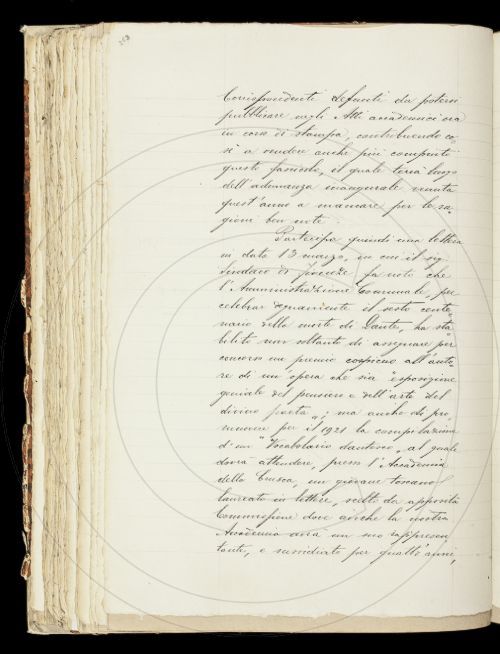 Corrispondenti defunti da potersi
pubblicare negli Atti accademici ora
in corso di stampa, contribuendo co=
sì a rendere anche più compiuto
questo fascicolo, il quale terrà luogo
dell'adunanza inaugurale venuta
quest'anno a mancare per le ra=
gioni ben note.
Partecipa quindi una lettera
in data 13 marzo, in cui il sig.
Sindaco di Firenze fa noto che
l'Amministrazione Comunale, per
celebrar degnamente il sesto cente=
nario della morte di Dante, ha sta=
bilito non soltanto di assegnare per
concorso un premio cospicuo all'auto=
re di un'opera che sia "esposizione
geniale del pensiero e dell'arte del
divino poeta"; ma anche di pro
muovere per il 1921 la compilazione
d'un "Vocabolario dantesco", al quale
dovrà attendere, presso l'Accademia
della Crusca, un giovane toscano
laureato in lettere, scelto da apposita
Commissione dove anche la nostra
Accademia avrà un suo rappresen
tante, e sussidiato per quattr'anni,